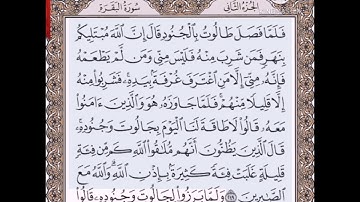 الجزء الثاني سورة البقرة
فَلَمَّا فَصَلَ طَالُوتُ بِالْجُنُودِ قَالَ إِنَّ اللَّهَ مُبْتَلِيكُم
بِنَهَرٍ فَمَن شَرِبَ مِنْهُ فَلَيْسَ مِنِّي وَمَن لَّمْ يَطْعَمْهُ
فَإِنَّهُ مِنِّي إِلَّا مَنِ اغْتَرَفَ غُرْفَةً بِيَدِهِ فَشَرِبُوا مِنْهُ
إِلَّا قَلِيلًا مِّنْهُمْ فَلَمَّا جَاوَزَهُ هُوَ وَالَّذِينَ آمَنُوا
مَعَهُ قَالُوا لَا طَاقَةَ لَنَا الْيَوْمَ بِجَالُوتَ وَجُنُودِهِ
قَالَ الَّذِينَ يَظُنُّونَ أَنَّهُم مُّلَاقُو اللَّهِ كَم مِّن فِئَةٍ
قَلِيلَةٍ غَلَبَتْ فِئَةً كَثِيرَةً بِإِذْنِ اللَّهِ وَاللَّهُ مَعَ
الصَّابِرِينَ ٢٤٩ وَلَمَّا بَرَزُوا لِجَالُوتَ وَجُنُودِهِ قَالُوا